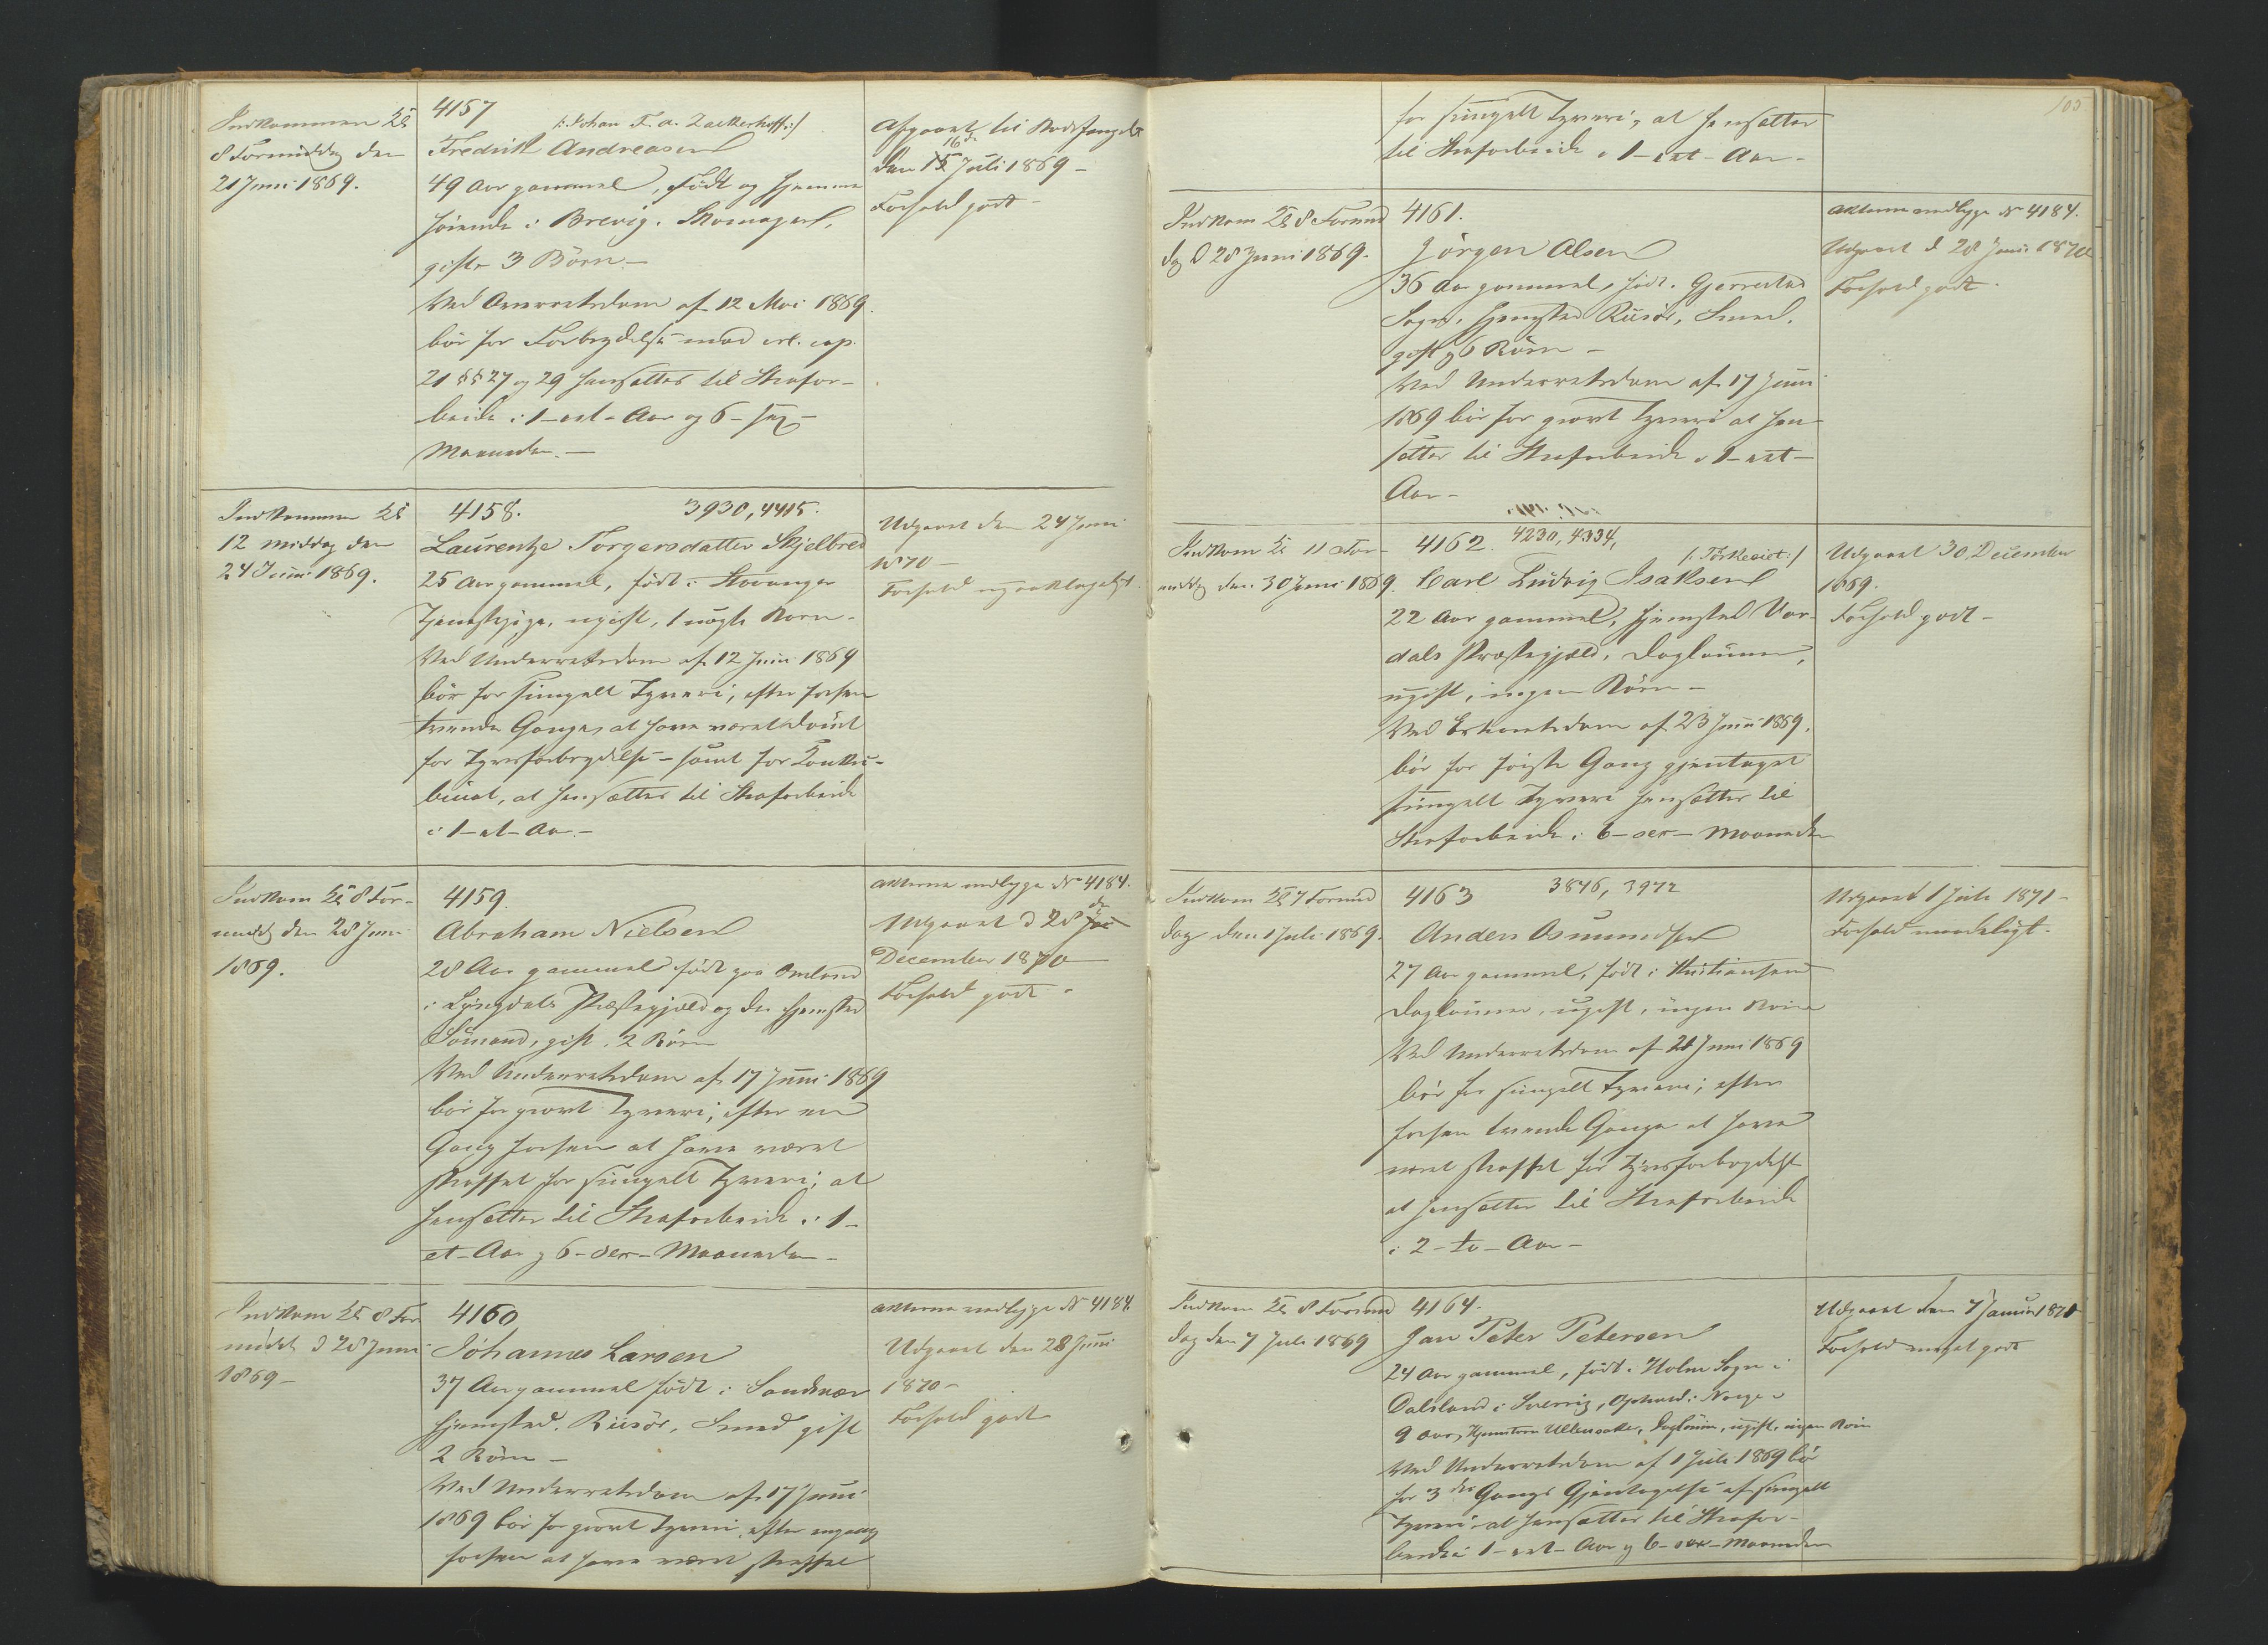 Indkommen Kl
8 Formiddag den
21 Juni 1869.
4157
/: Johan F. A. Zackerhoff :/
Fredrik Andreasen
49 Aar gammel, født og hjemme
hørende i Brevig. Skomager,
gift 3 Börn. —
Ved Overretsdom af 12 Mai 1869
bör for Forbrydelse mod crl. cap.
21 §§ 27 og 29 hensættes til Strafar-
beide i 1 - et - Aar og 6 - sex -
Maaneder. —
Afgaaet til Bodsfængslet
16de
den 15 Juli 1869 —
Forhold godt —
Indkommen Kl
12 Middag den
24 Juni 1869.
4158. 3930, 4415.
Laurentze Torgersdatter Skjelbred
25 Aar gammel, født i Stavanger
Tjenestepige, ugift, 1 uægte Barn.
Ved Underretsdom af 12 Juni 1869
bör for simpelt Tyveri, efter forhen
tvende Gange at have været dömt
for Tyvsforbrydelse - samt for Konku-
binat, at hensættes til Strafarbeide
i 1 - et - Aar. —
Udgaaet den 24 Juni
1870 —
Forhold upaaklageligt.
Indkom Kl 8 For-
middg den 28 Juni
1869.
4159.
Abraham Nielsen
28 Aar gammel født paa
i Lyngdals Præstegjæld og der Hjemsted
Sömand, gift, 2 Börn
Ved Underretsdom af 17 Juni 1869
bör for grovt Tyveri; efter en
Gang forhen at have været
straffet for simpelt Tyveri; at
hensættes til Strafarbeide i 1 -
et - Aar og 6 - sex - Maaneder —
Akterne vedligge No 4184.
Udgaaet d 28 de
December 1870
Forhold godt —
Indkom Kl 8 For
middg d 28 Juni
1869 —
4160
Johannes Larsen
37 Aar gammel født i Sandnæs
Hjemsted. Riisör, Smed gift
2 Börn —
Ved Underretsdom af 17 Juni
1869 bör for grovt Tyveri, efter engang
forhen at have været straffet
Akterne vedligge No 4184.
Udgaaet den 28 Juni
1870 —
Forhold godt
105
for simpelt Tyveri, at hensættes
til Strafarbeide i 1 - et - Aar —
Indkom Kl 8 Formid
dg d 28 Juni 1869.
4161.
Jörgen Olsen
36 Aar gammel, født i Gjerrestad
Sogn. Hjemsted Riisör, Smed,
gift og 6 Börn —
Ved Underretsdom af 17 Juni
1869 bör for grovt Tyveri at hen-
sættes til Strafarbeide i 1 - et -
Aar —
Akterne vedligge No 4184.
Udgaaet d 28 Juni 1870
Forhold godt.
Indkom Kl 11 For-
middg den 30 Juni 1869.
4162. 4230, 4334,
Carl Ludvig Isaksen
22 Aar gammel, Hjemsted Vær-
dals Præstegjæld. Daglönner,
ugift, ingen Börn —
Ved Extraretsdom af 23 Juni 1869.
bör for første Gang gjentaget
simpelt Tyveri hensættes til
Strafarbeide i 6 - sex - Maaneder
Udgaaet 30 December
1869.
Forhold godt —
Indkom Kl 7 Formid
dag den 1 Juli 1869.
4163 3846, 3972
Anders Osmundsen
27 Aar gammel, født i Kristiansand
Daglönner, ugift, ingen Börn
Ved Underretsdom af 21 Juni 1869
bör for simpelt Tyveri; efter
forhen tvende Gange at have
været straffet for Tyvsforbrydelse
at hensættes til Strafarbeide
i 2 - to - Aar —
Udgaaet 1 Juli 1871 —
Forhold maadeligt.
Indkom Kl 8 Formid
dag den 7 Juli 1869
4164.
Jan Peter Petersen
24 Aar gammel, født i Holm Sogn i
Dalsland i Sverrig, Ophold i Norge i
9 Aar, Hjemstavn Ullensaker, Daglönner, ugift, ingen Börn
Ved Underretsdom af 1 Juli 1869 bör
for 3die Gangs Gjentagelse af simpelt
Tyveri at hensættes til Strafar-
beide i 1 - et - Aar og 6 - sex - Maaneder
Udgaaet den 7 Januar 1871
Forhold meget godt